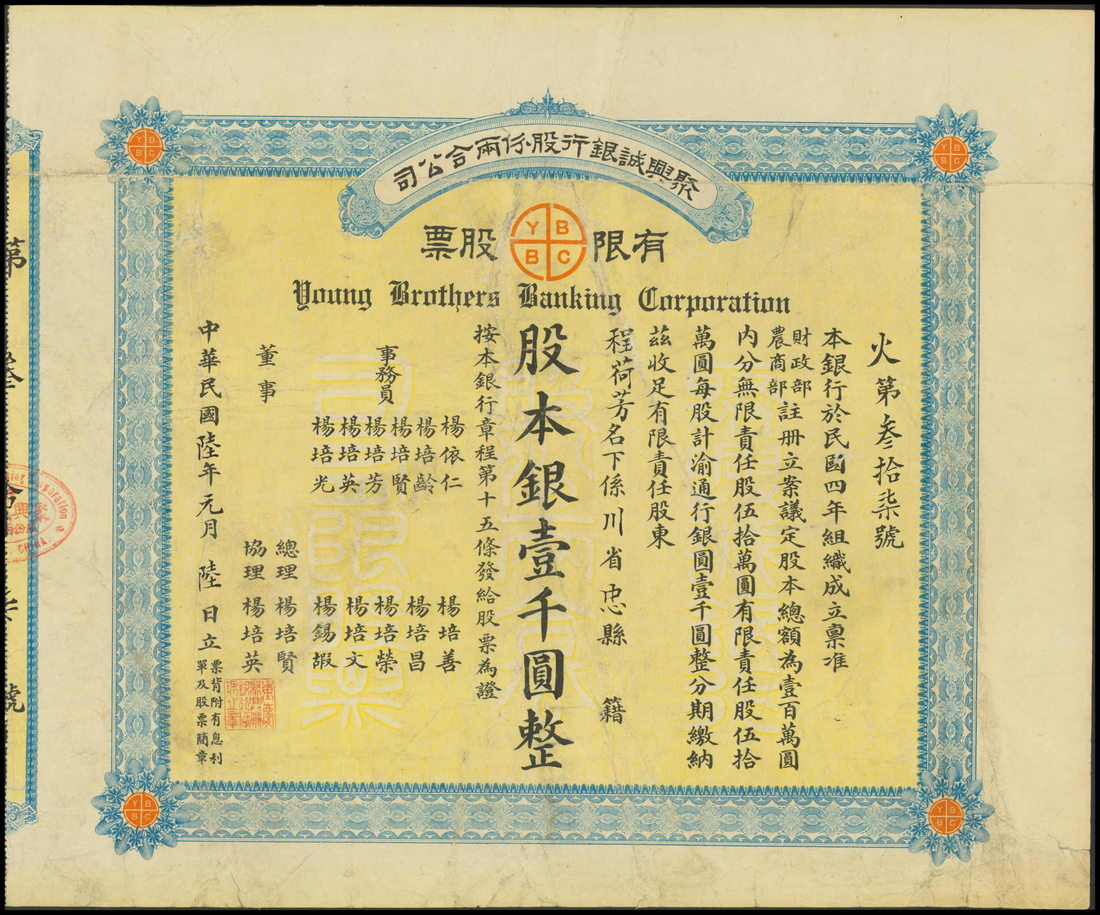 聚興誠銀行股份兩合公司
有限股票
Y B
B C
Young Brothers Banking Corporation
火第叁拾柒號
本銀行於民國四年組織成立稟准
財政部
農商部
註册立案議定股本總額為壹百萬圓
內分無限責任股伍拾萬圓有限責任股伍拾
萬圓每股計渝通行銀圓壹千圓整分期繳納
茲收足有限責任股東
程荷芳名下係川省忠縣 籍
股本銀壹千圓整
按本銀行章程第十五條發給股票為證
事務員
楊依仁 楊培善
楊培齡 楊培昌
楊培賢 楊培榮
楊培芳 楊培文
楊培英 楊錫嘏
楊培光
董事
總理 楊培賢
協理 楊培英
中華民國陸年元月陸日立
票背附有息利
單及股票簡章
Y B
B C
Y B
B C
Y B
B C
Y B
B C
第
號
CHINA